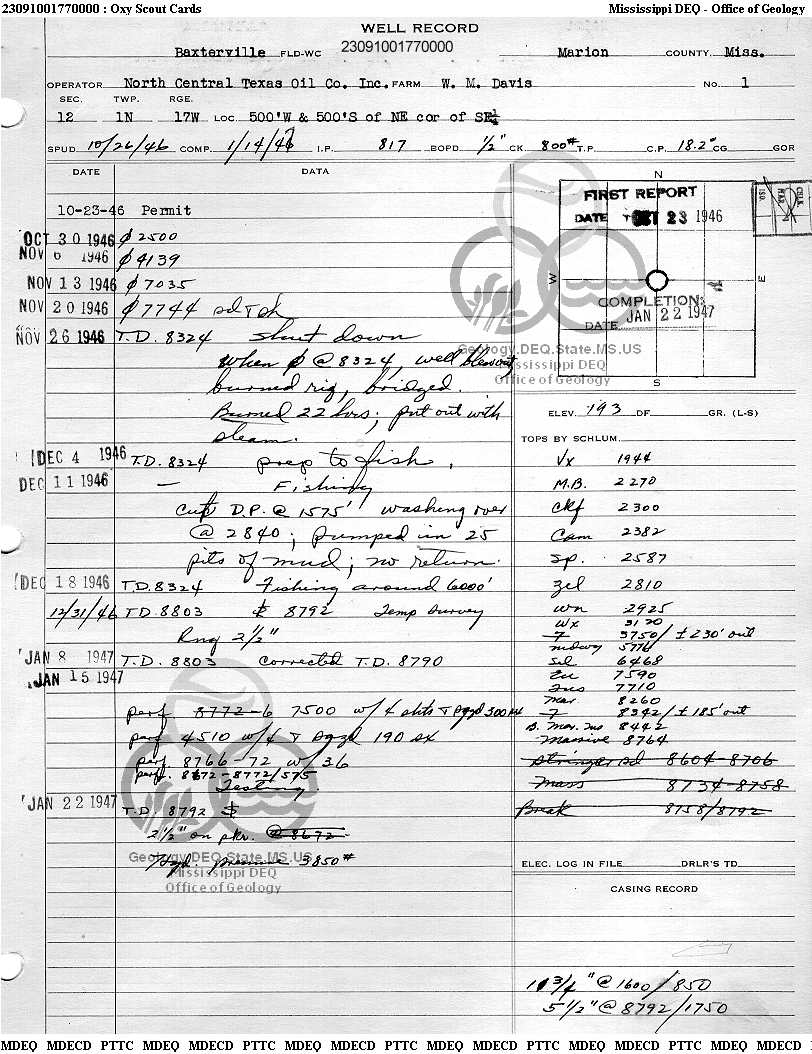 23091001770000 : Oxy Scout Cards Mississippi DEQ - Office of Geology
WELL RECORD
Baxterville FLD-WC 23091001770000 Marion COUNTY, Miss.
OPERATOR North Central Texas Oil Co. Inc. FARM W. M. Davis NO. 1
SEC. TWP. RGE.
12 1N 17W LOC. 500'W & 500'S of NE cor of SE¼
SPUD 10/26/46 COMP. 1/14/47 I.P. 817 BOPD ½" CK 800# T.P. C.P. 18.2° CG GOR
DATE DATA
10-23-46 Permit
OCT 30 1946 ϕ 2500
NOV 6 1946 ϕ 4139
NOV 13 1946 ϕ 7035
NOV 20 1946 ϕ 7744 sd & sh
NOV 26 1946 T.D. 8324 Shut down
When ϕ @ 8324, well blewout
burned rig, bridged.
Burned 22 hrs; put out with
steam.
DEC 4 1946 T.D. 8324 prep to fish.
DEC 11 1946 — Fishing
cut D.P. @ 1575' washing over
@ 2840; pumped in 25
pits of mud; no return.
DEC 18 1946 T.D. 8324 Fishing around 6000'
12/31/46 TD 8803 $ 8792 Temp Survey
Rng 2½"
JAN 8 1947 T.D. 8803 corrected T.D. 8790
JAN 15 1947
perf 8772-6 7500 w/4 shts & sqzd 300 sx
perf 4510 w/4 & sqzd 190 sx
perf. 8766-72 w/36
perf. 8672-8772/575
Testing
JAN 22 1947 T.D. 8792 $
2½" on pkr. @ 8672
Hyd. pressure 3850#
N
FIRST REPORT
DATE OCT 23 1946
W E
COMPLETION:
DATE JAN 22 1947
S
Geology.DEQ.State.MS.US
Mississippi DEQ
Office of Geology
ELEV. 193 DF GR. (L-S)
TOPS BY SCHLUM.
Vx 1944
M.B. 2270
Ckf 2300
Cam 2382
Sp. 2587
Zel 2810
Wn 2925
Wx 3120
F 3750/ ±230' out
Midwy 5776
Sel 6468
Eu 7590
Tus 7710
Mar. 8260
F 8342/ ±185' out
B. Mar. Tus 8442
Massive 8764
Stringer sd 8604-8706
Mass 8734-8758
Break 8758/8792
Geology.DEQ.State.MS.US
Mississippi DEQ
Office of Geology
ELEC. LOG IN FILE DRLR'S TD
CASING RECORD
10 3/4" @ 1600/850
5 1/2" @ 8792/1750
MDEQ MDECD PTTC MDEQ MDECD PTTC MDEQ MDECD PTTC MDEQ MDECD PTTC MDEQ MDECD PTTC MDEQ MDECD